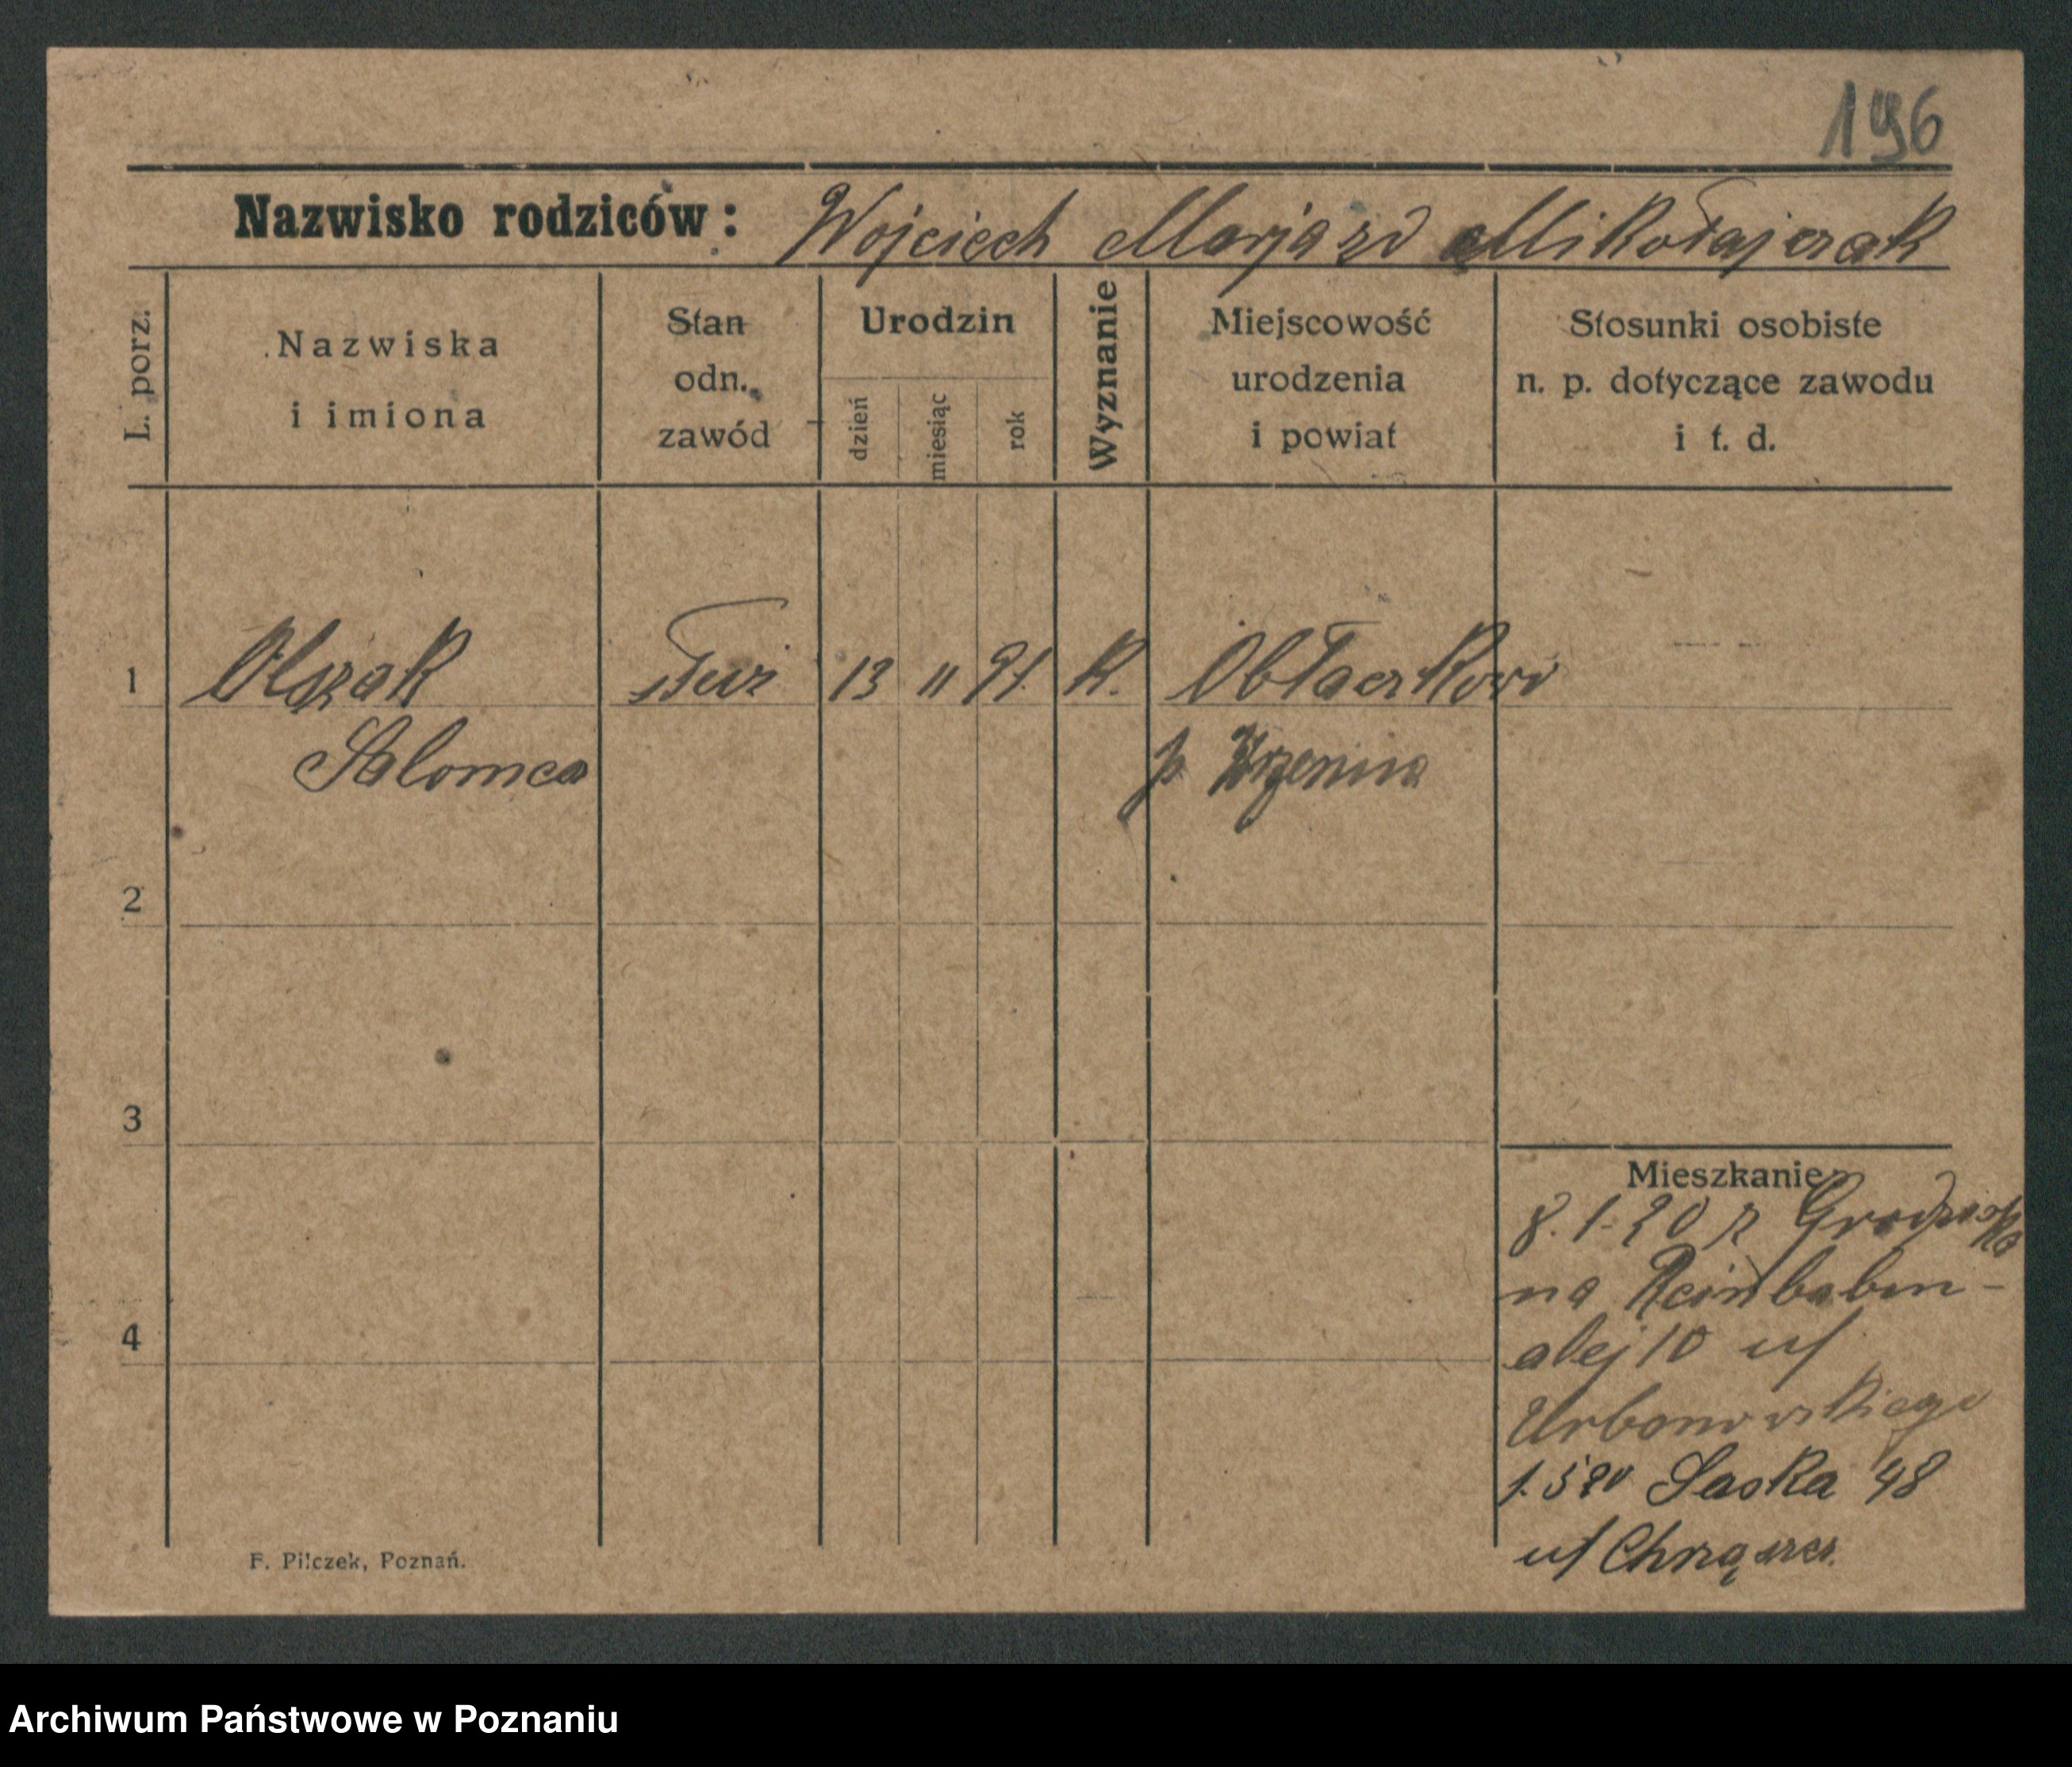 196
Nazwisko rodziców: Wojciech Marja zd Mikołajczak
L. porz.
Nazwiska i imiona
Stan odn. zawód
Urodzin
dzień
miesiąc
rok
Wyznanie
Miejscowość urodzenia i powiat
Stosunki osobiste n. p. dotyczące zawodu i t. d.
1 Olszak służ 13 11 91. k. Obłaczkowo
Salomea p Września
2
3
4
Mieszkanie
8.1.20 z Grodziska
na Reinbaben-
alej 10 u/
Urbanowskiego
1.5 20 Saska 48
u/ Chrząszcz.
F. Pilczek, Poznań.
Archiwum Państwowe w Poznaniu